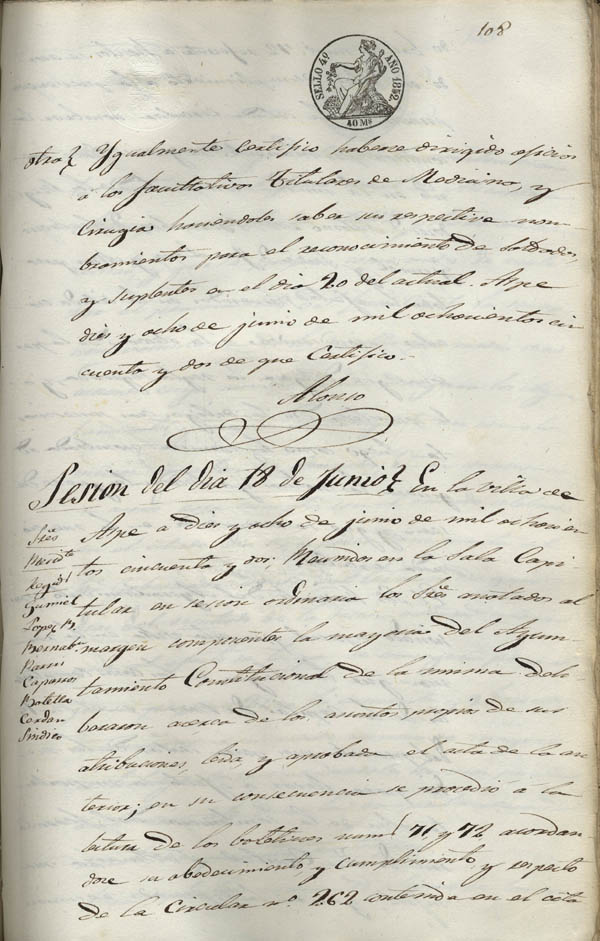 108
SELLO 4º AÑO 1852.
40 Ms
otra Ygualmente Certifico haberse dirigido oficios
á los facultativos titulares de Medicina, y
Cirugia haciendoles saber sus respectivos nom-
bramientos para el reconocimiento de Soldados,
y suplentes en el dia 20 del actual. Aspe
dies y ocho de junio de mil ochocientos cin
cuenta y dos de que Certifico.-
Alonso
Sesion del dia 18 de Junio En la villa de
Sres
Presidte
Regidl
Gumiel
Lopez
Bernabeu
Caparros
Botella
Cerdan
Sindico
Aspe a dies y ocho de junio de mil ochocien
tos cincuenta y dos; Reunidos en la Sala Capi-
tular en sesion ordinaria los Sres anotados al
margen componentes la mayoria del Ayun-
tamiento Constitucional de la misma deli-
beraron acerca de los asuntos propios de sus
atribuciones, leida y aprobada el acta de la an
terior; en su consecuencia se procedió a la
lectura de los boletines num 71 y 72 acordan-
dose su obedecimiento y cumplimento, y respecto
de la Circular nº 262 contenida en el cita